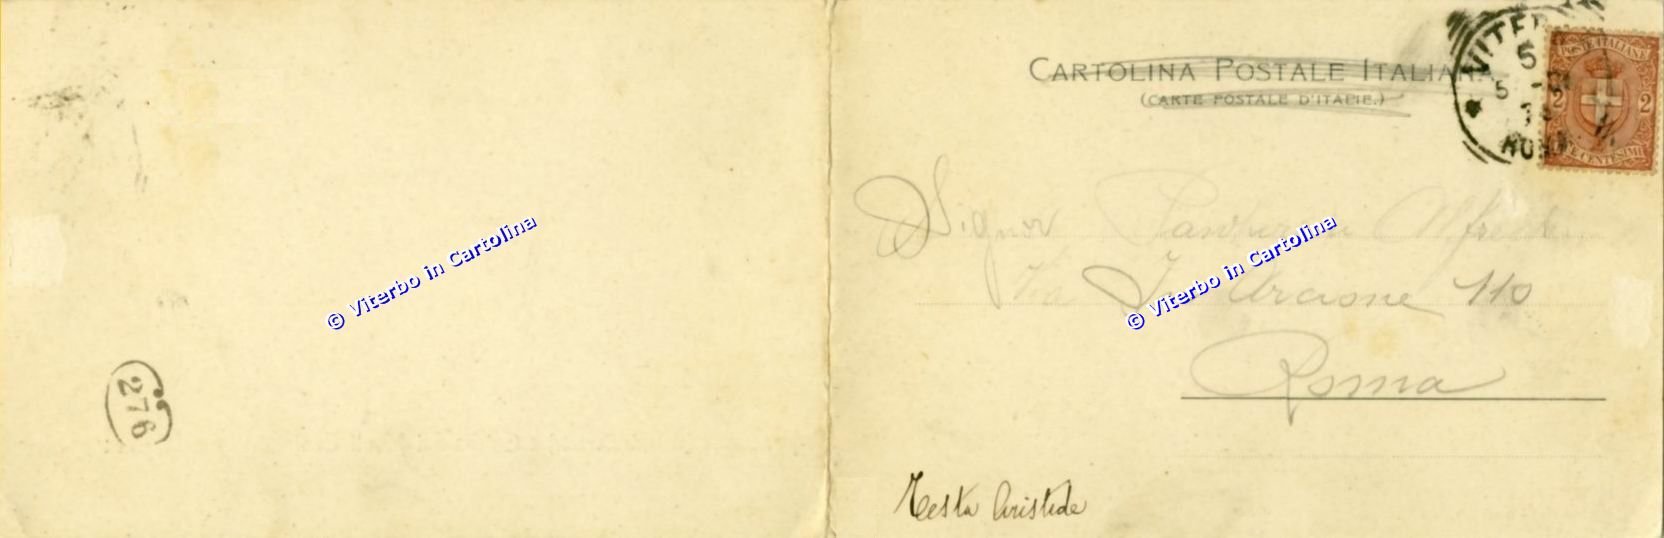 CARTOLINA POSTALE ITALIANA
(CARTE POSTALE D'ITALIE.)
VITER
5
5
ROMA
POSTE ITALIANE
2 2
CENTESIMI
Signor Alfredo
Via In Arcione 110
Roma
Testa Aristide
276
© Viterbo in Cartolina
© Viterbo in Cartolina